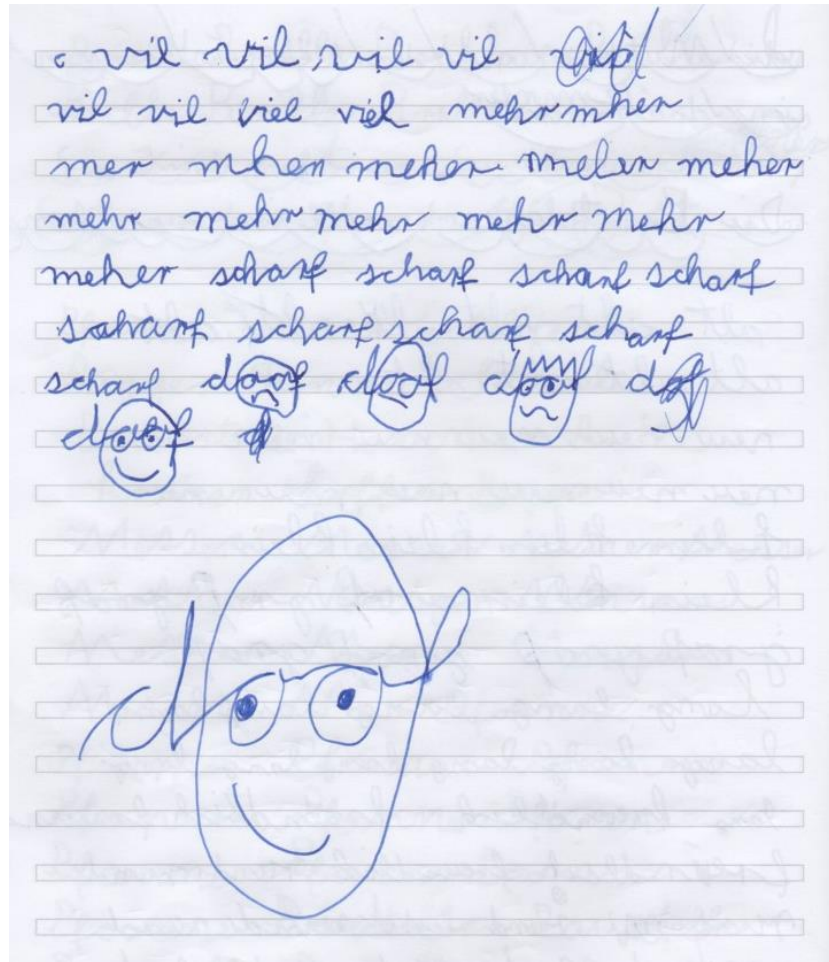 vil vil vil vil
vil vil viel viel mehr mher
mer mher meher meher
mehr mehr mehr mehr mehr
meher scharf scharf scharf scharf
scharf scharf scharf scharf
scharf doof doof doof doof
doof
doof